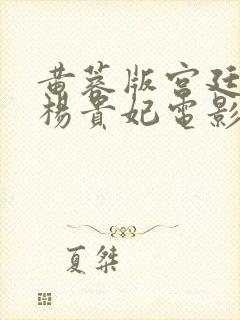 黄蓉版宫廷
杨贵妃電影
夏桀